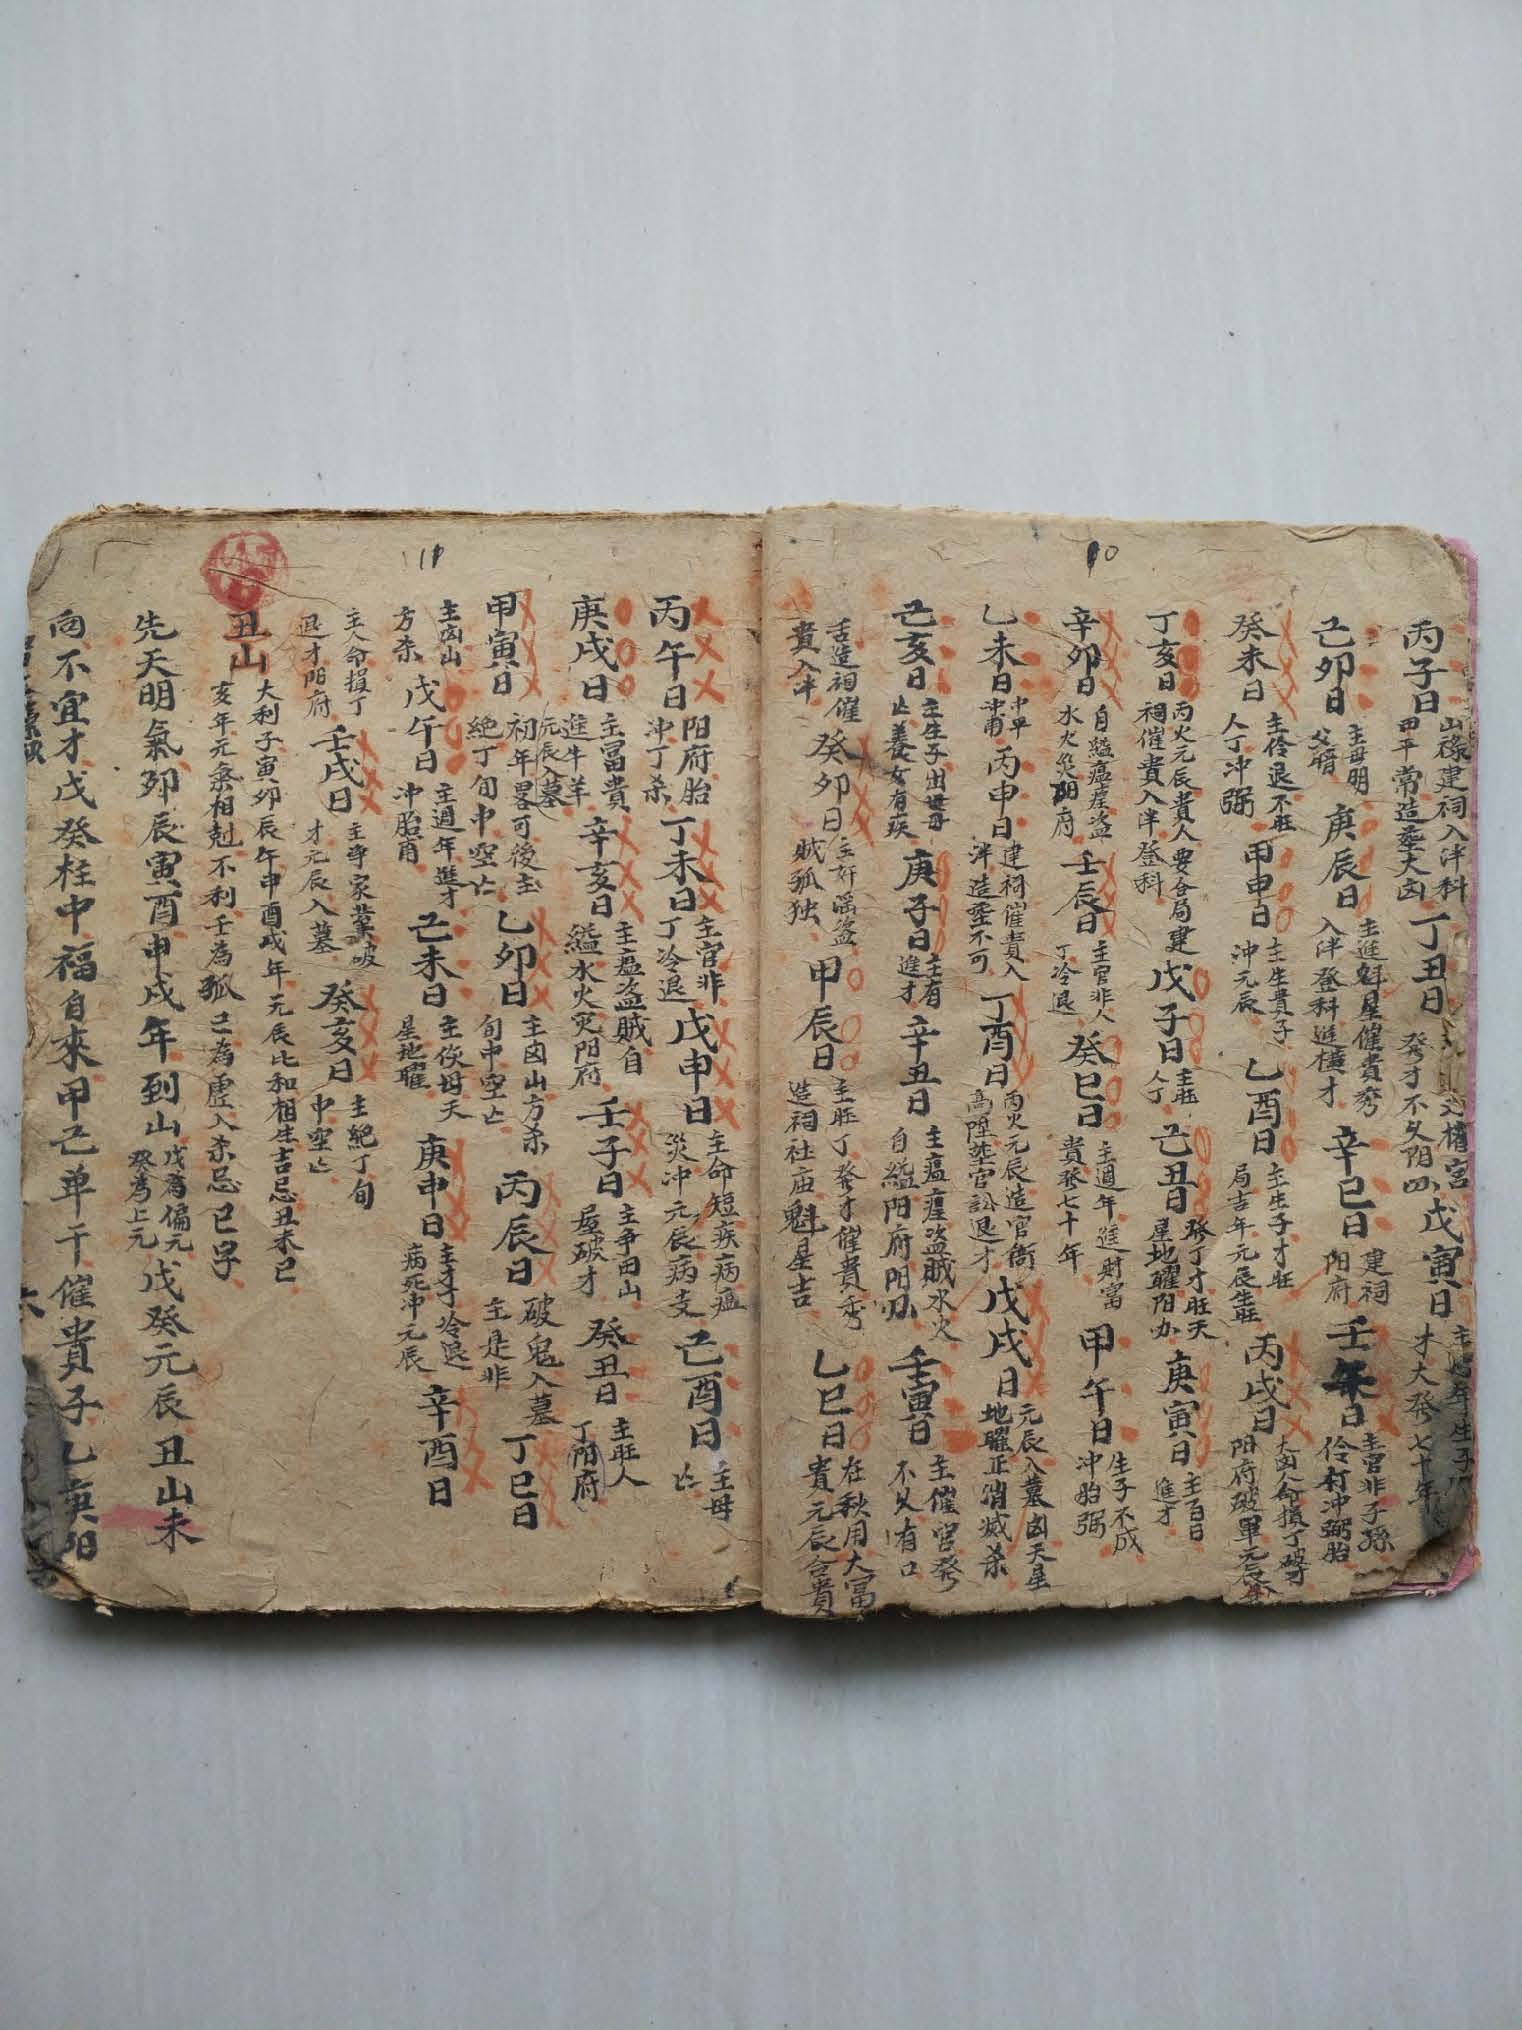 10
丙子日 山祿建祠入泮科 甲平常造塟大凶 丁丑日 發才不久阳 戊寅日 才大發七十年
己卯日 主母明父暗 庚辰日 主進魁星催貴秀入泮登科進橫才 辛巳日 建祠阳府 壬午日 主官非子孫伶仃冲弼胎
癸未日 主伶退不旺人丁冲弼 甲申日 主生貴子冲元辰 乙酉日 主生子才旺局吉年元辰生旺 丙戌日 大凶人命損丁破才阳府破單元辰
丁亥日 丙火元辰貴人要合局建祠催貴入泮登科 戊子日 主旺人丁 己丑日 發丁才旺天星地曜阳 庚寅日 主百日進才
辛卯日 自縊瘟㾮盗水火災阴府 壬辰日 主官非人丁冷退 癸巳日 主週年進財富貴發七十年 甲午日 生子不成冲胎弼
乙未日 中平 丙申日 建祠催貴入泮造塟不可 丁酉日 丙火元辰造官衙高陞塟官訟退才 戊戌日 元辰入墓凶天星地曜正消滅杀
己亥日 主生子出母亡養女有疾 庚子日 主有進才 辛丑日 主瘟㾮盗賊水火自縊阳府阳 壬寅日 主催官發不久有口
舌造祠催貴入泮 癸卯日 主奸滛盗賊孤独 甲辰日 主旺丁發才催貴秀造祠社庙魁星吉 乙巳日 在秋用大富貴元辰合貴
11
丙午日 阳府胎冲丁杀 丁未日 主官非丁冷退 戊申日 主命短疾病瘟災冲元辰病支 己酉日 主母亡
庚戌日 主富貴進牛羊元辰入墓 辛亥日 主瘟盗賊自縊水火灾阳府 壬子日 主争田山屋破才 癸丑日 主旺人丁阳府
甲寅日 初年畧可後主絶丁旬中空亡 乙卯日 主凶山方杀旬中空亡 丙辰日 破鬼入墓主是非 丁巳日
主凶山方杀 戊午日 主週年進才冲胎 己未日 主伤母天星地曜 庚申日 主才冷退病死冲元辰 辛酉日
主人命損丁退才阳府 壬戌日 主争家業破才元辰入墓 癸亥日 主絶丁旬中空亡
丑山 大利子寅卯辰午申酉戌年元辰比和相生吉忌丑未巳亥年元氣相尅不利壬為孤己為虚入杀忌巳字
先天明氣卯辰寅酉申戌年到山 戊為偏元癸為上元 戊癸元辰丑山未
向不宜才戊癸柱中福自來甲己单干催貴子乙庚阳